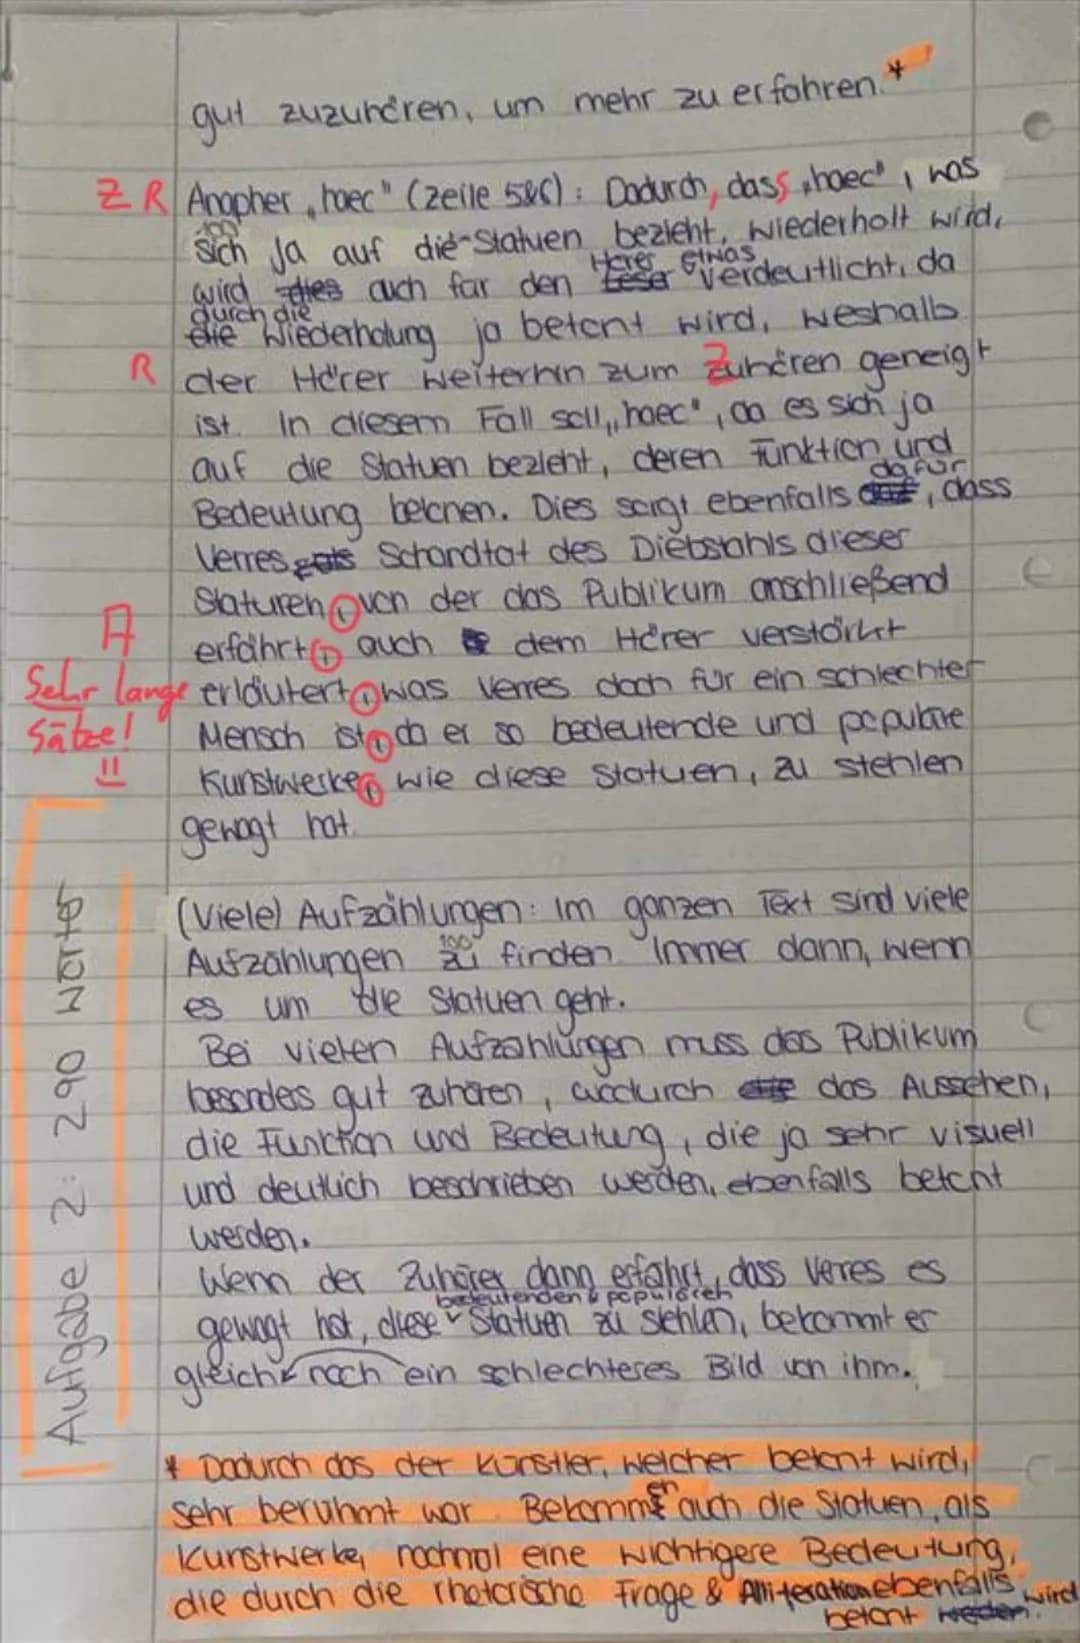 gut zuzuhören, um mehr zu erfahren.*
Z R Anapher „haec" (Zeile 5&6): Dadurch, dass „haec", was
100
sich ja auf die Statuen bezieht, wiederholt wird,
Hörer etwas
wird dies auch für den Leser verdeutlicht, da
durch die
die Wiederholung ja betont wird, weshalb
R der Hörer weiterhin zum Zuhören geneigt
ist. In diesem Fall soll „haec", da es sich ja
auf die Statuen bezieht, deren Funktion und
dafür
Bedeutung betonen. Dies sorgt ebenfalls, dass
Verres Schandtat des Diebstahls dieser
Staturen, von der das Publikum anschließend
A
erfährt, auch dem Hörer verstärkt
Sehr lange Sätze!
erläutert, was Verres doch für ein schlechter
Mensch ist, da er so bedeutende und populäre
Kunstwerke, wie diese Statuen, zu stehlen
gewagt hat.
(Viele) Aufzählungen: Im ganzen Text sind viele
200
Aufzählungen zu finden. Immer dann, wenn
es um die Statuen geht.
Bei vielen Aufzählungen muss das Publikum
besonders gut zuhören, wodurch das Aussehen,
die Funktion und Bedeutung, die ja sehr visuell
und deutlich beschrieben werden, ebenfalls betont
werden.
Wenn der Zuhörer dann erfährt, dass Verres es
bedeutenden & populären
gewagt hat, diese Statuen zu stehlen, bekommt er
gleich noch ein schlechteres Bild von ihm.
Aufgabe 2: 290 Wörter
* Dadurch das der Künstler, welcher betont wird,
sehr berühmt war. Bekommen auch die Statuen, als
Kunstwerke, nochmal eine wichtigere Bedeutung,
die durch die rhetorische Frage & Alliteration ebenfalls
betont wird